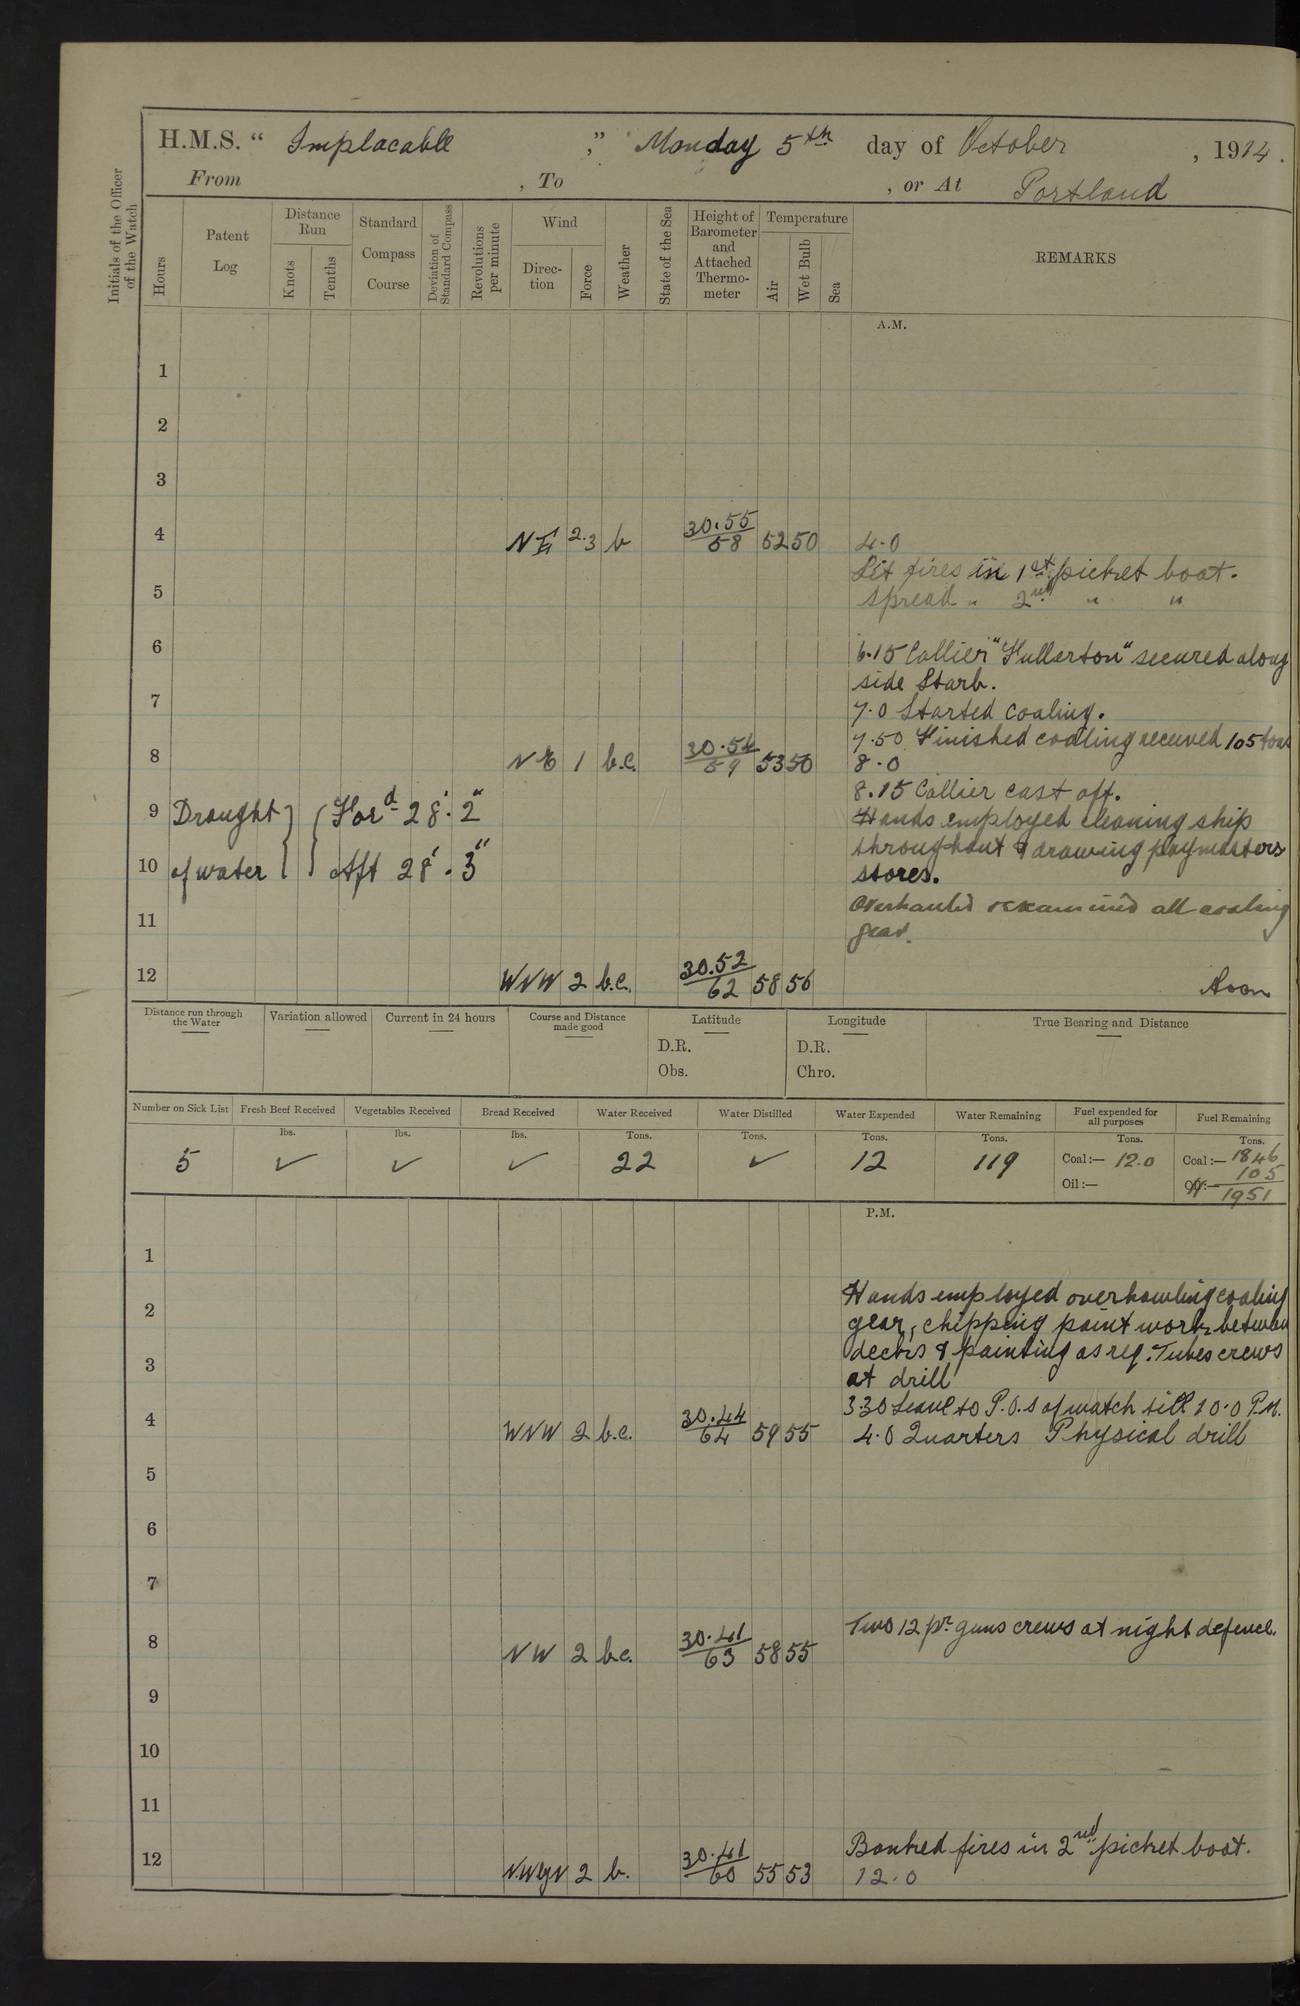 H.M.S. " Implacable ," Monday 5th day of October, 1914.
From , To , or At Portland
Initials of the Officer of the Watch
Hours
Patent Log
Distance Run
Knots
Tenths
Standard Compass Course
Deviation of Standard Compass
Revolutions per minute
Wind
Direction
Force
Weather
State of the Sea
Height of Barometer and Attached Thermometer
Temperature
Air
Wet Bulb
Sea
REMARKS
A.M.
1
2
3
4 NE 2.3 b 30.55/58 52 50 4.0
Lit fires in 1st picket boat.
5 Spread " 2nd " "
6 6.15 Collier "Fullerton" secured along
side Starb.
7 7.0 Started Coaling.
7.50 Finished coaling received 105 tons
8 NE 1 b.c. 30.54/59 53 50 8.0
8.15 Collier cast off.
9 Draught } { For'd 28'. 2" Hands employed cleaning ship
throughout & drawing paymasters
10 of water } { Aft 28'. 3" stores.
Overhauled & examined all coaling
11 gear.
12 WNW 2 b.c. 30.52/62 58 56 Noon
Distance run through the Water
Variation allowed
Current in 24 hours
Course and Distance made good
Latitude
D.R.
Obs.
Longitude
D.R.
Chro.
True Bearing and Distance
Number on Sick List
Fresh Beef Received
Vegetables Received
Bread Received
Water Received
Water Distilled
Water Expended
Water Remaining
Fuel expended for all purposes
Fuel Remaining
lbs. lbs. lbs. Tons. Tons. Tons. Tons. Tons. Tons.
5 ✓ ✓ ✓ 22 ✓ 12 119 Coal:— 12.0 Coal:— 1846
105
Oil:— Oil:— 1951
P.M.
1
Hands employed overhawling coaling
2 gear, chipping paint work between
3 decks & painting as req. Tubes crews
at drill
3.30 Leave to P.O.s of watch till 10.0 P.M.
4 WNW 2 b.c. 30.44/64 59 55 4.0 Quarters Physical drill
5
6
7
Two 12 pr guns crews at night defence.
8 NW 2 b.c. 30.41/63 58 55
9
10
11
Banked fires in 2nd picket boat.
12 NWbyN 2 b. 30.41/60 55 53 12.0